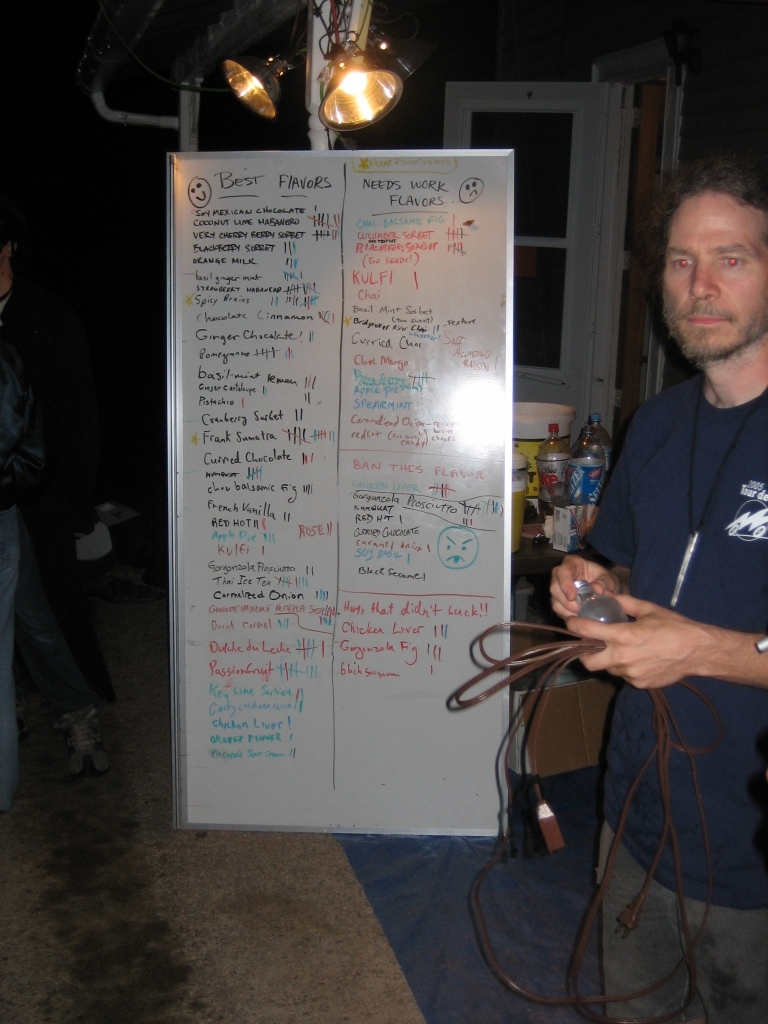 BEST FLAVORS
SOY MEXICAN CHOCOLATE
COCONUT LIME HABANERO
VERY CHERRY BERRY SORBET
BLACKBERRY SORBET
ORANGE MILK
basil ginger mint
STRAWBERRY HABANERO
Spicy Brains
Chocolate Cinnamon
Ginger Chocolate!
Pomegranate
basil-mint lemon
Ginger Cantaloupe
Pistachio
Cranberry Sorbet
Frank Sumatra
Curried Chocolate
KUMQUAT
choc balsamic fig
French Vanilla
RED HOT
ROSE
Apple Pie
Kulfi
Gorgonzola Prosciutto
Thai Ice Tea
Carmelized Onion
Dulche du Leche
Passionfruit
Key Lime Sorbet
Chicken Liver!
ORANGE FLOWER
Pineapple Sour Cream
NEEDS WORK
FLAVORS
CHOC BALSAMIC FIG
CUCUMBER SORBET
BLACKBERRY SORBET
(Too SEEDY!)
KULFI
Chai
Basil Mint Sorbet
(too sweet)
Texture
Curried Choc
Clove Mango
SPEARMINT
Caramelized Onion
redhot (cinnamon)
candy
BAN THIS FLAVOR
CHICKEN LIVER
Gorgonzola Prosciutto
KUMQUAT
RED HOT
CURRIED CHOCOLATE
SOY BASIL
Black Sesame
Hants that didn't suck!!
Chicken Liver
Gorgonzola Fig
black sesame
2005
Tour de